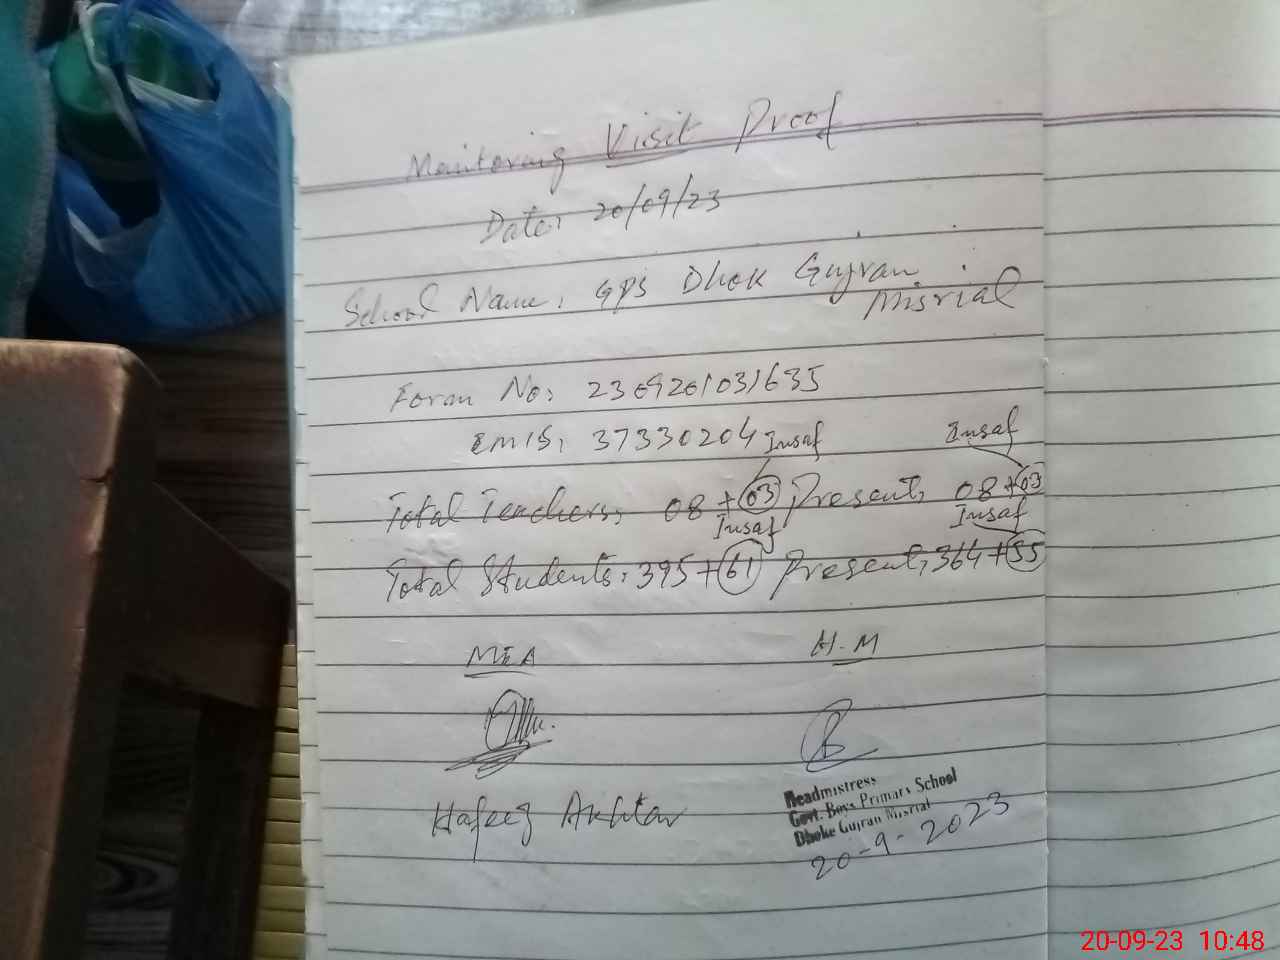 Monitoring Visit Proof
Date: 20/09/23
School Name: GPS Dhok Gujran
Misrial
Form No: 2309201031635
EMIS: 37330204 Insaf Insaf
Total Teachers: 08 + 03 Present: 08 + 03
Insaf Insaf
Total Students: 395 + 61 Present: 364 + 55
MEA H.M
Hafeez Akhtar
Headmistress
Govt. Boys Primary School
Dhoke Gujran Misrial
20-9-2023
20-09-23 10:48